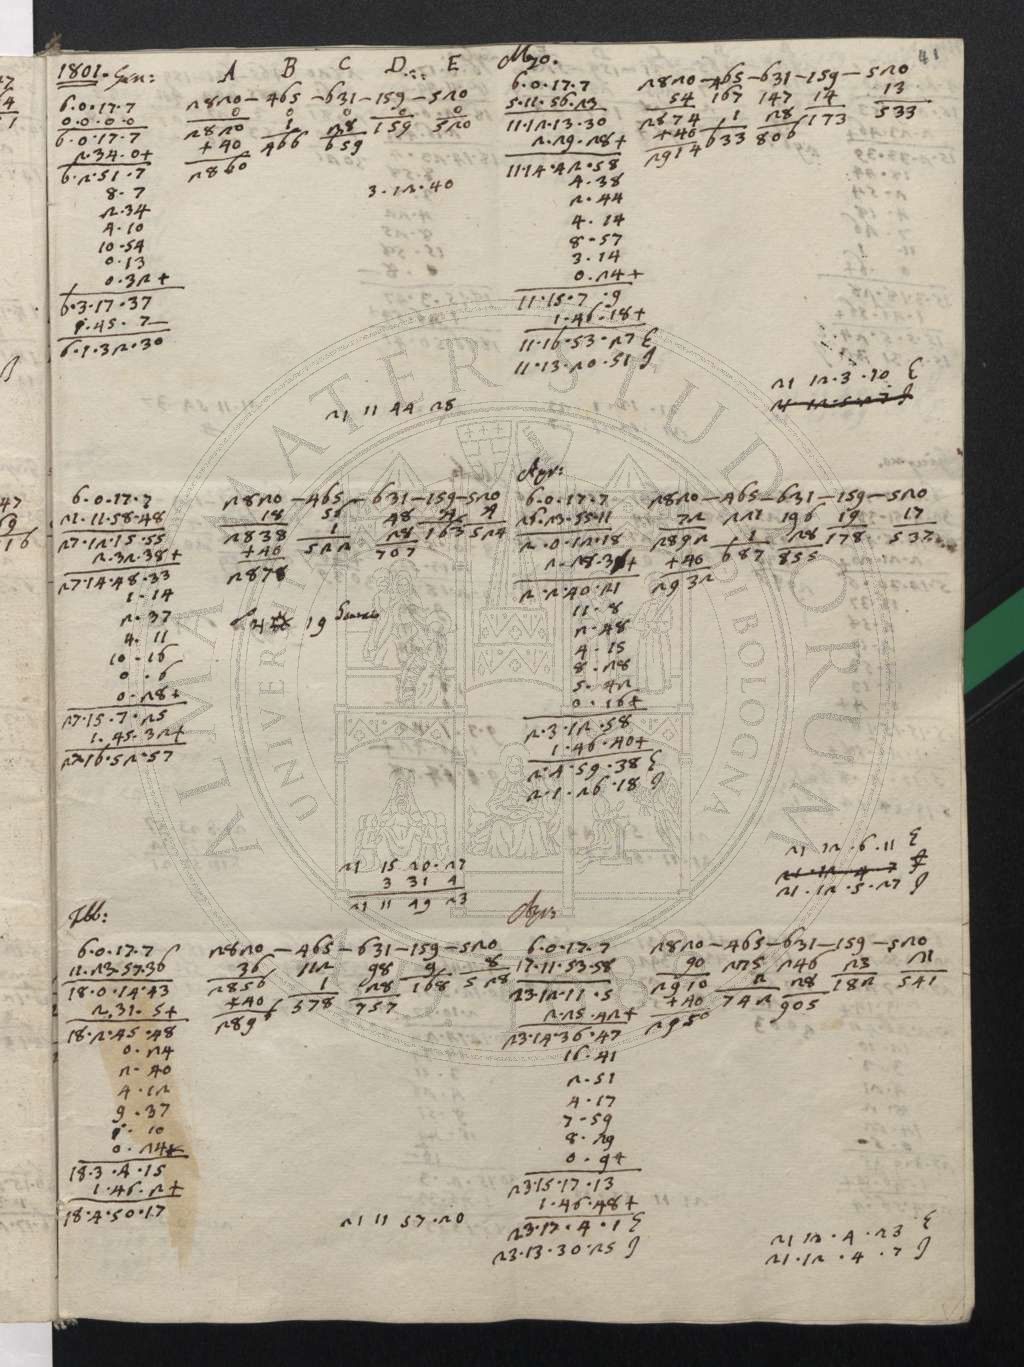 41
1801. Gen:
A B C D E
6.0.17.7
0.0.0.0
6.0.17.7
2.34.0+
6.2.51.7
8.7
2.34
4.10
10.54
0.13
0.32+
6.3.17.37
1.45.7
6.1.32.30
2820-465-631-159-520
0 0 0 0 0
2820 1 28 159 520
+40 466 659
2860
3.12.40
21 11 44 28
Mzo.
6.0.17.7
5.11.56.23
11.12.13.30
2.29.28+
11.14.42.58
4.38
2.44
4.14
8.57
3.14
0.24+
11.15.7.9
1.46.18+
11.16.53.27
11.13.20.51
2820-465-631-159-520
54 167 147 14 13
2874 1 28 173 533
+40 633 806
2914
21 12.3.10
21.12.5.27
6.0.17.7
21.11.58.48
27.12.15.55
2.32.38+
27.14.48.33
1.14
2.37
4.11
10.16
0.6
0.28+
27.15.7.25
1.45.32+
27.16.52.57
2820-465-631-159-520
18 56 48 4 4
2838 1 28 163 524
+40 522 707
2878
19
21 15 20.27
3 31 4
21 11 49 23
Apr:
6.0.17.7
26.23.55.11
2.0.12.18
2.28.3+
2.2.40.21
11.8
2.48
4.15
8.28
5.42
0.16+
2.3.12.58
1.46.40+
2.4.59.38
2.1.26.18
2820-465-631-159-520
72 221 196 19 17
2892 1 28 178 537
+40 687 855
2932
21 12.6.11
21.12.4.7
21.12.5.27
Feb:
6.0.17.7
12.23.57.36
18.0.14.43
2.31.5+
18.2.45.48
0.24
2.40
4.12
9.37
1.10
0.24+
18.3.4.15
1.46.2+
18.4.50.17
2820-465-631-159-520
36 112 98 9 8
2856 1 28 168 528
+40 578 757
2896
21 11 57.20
6.0.17.7
17.11.53.58
23.12.11.5
2.25.42+
23.14.36.47
16.41
2.51
4.17
7.59
8.29
0.9+
23.15.17.13
1.46.48+
23.17.4.1
23.13.30.25
2820-465-631-159-520
90 275 246 23 21
2910 2 28 182 541
+40 742 905
2950
21 12.4.23
21.12.4.7